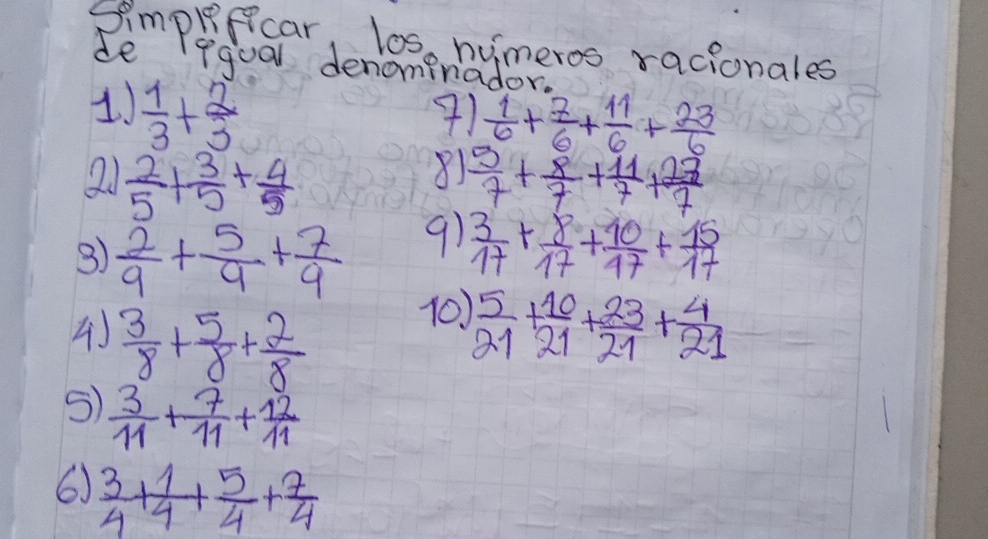 Simplificar los números racionales
de igual denominador.
1.) 1/3 + 2/3
2.) 2/5 + 3/5 + 4/5
3) 2/9 + 5/9 + 7/9
4) 3/8 + 5/8 + 2/8
5) 3/11 + 7/11 + 12/11
6) 3/4 + 1/4 + 5/4 + 7/4
7) 1/6 + 7/6 + 11/6 + 23/6
8) 5/7 + 8/7 + 11/7 + /7
9) 3/17 + 8/17 + 10/17 + 15/17
10.) 5/21 + 10/21 + 23/21 + 4/21